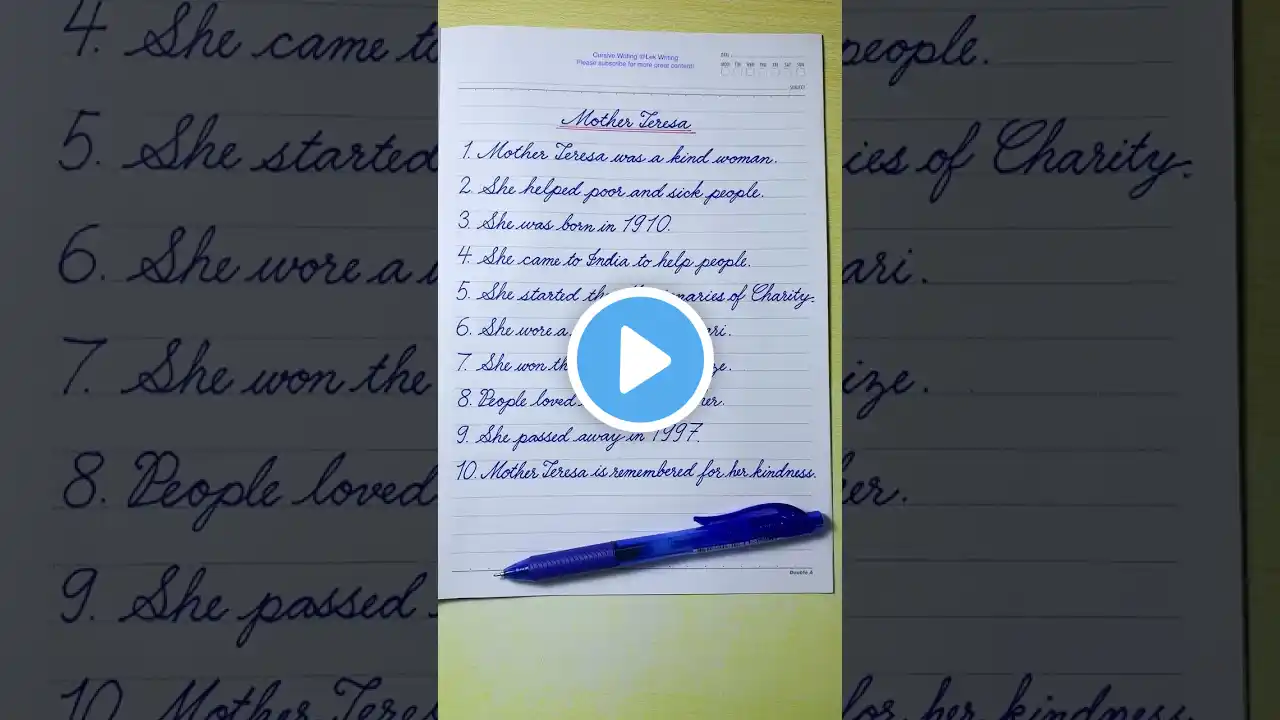 Cursive Writing @Lek Writing
Please subscribe for more great content!
DATE
MON TUE WED THU FRI SAT SUN
Mother Teresa
1. Mother Teresa was a kind woman.
2. She helped poor and sick people.
3. She was born in 1910.
4. She came to India to help people.
5. She started the Missionaries of Charity.
6. She wore a ari.
7. She won the ize.
8. People loved her.
9. She passed away in 1997.
10. Mother Teresa is remembered for her kindness.
Double A